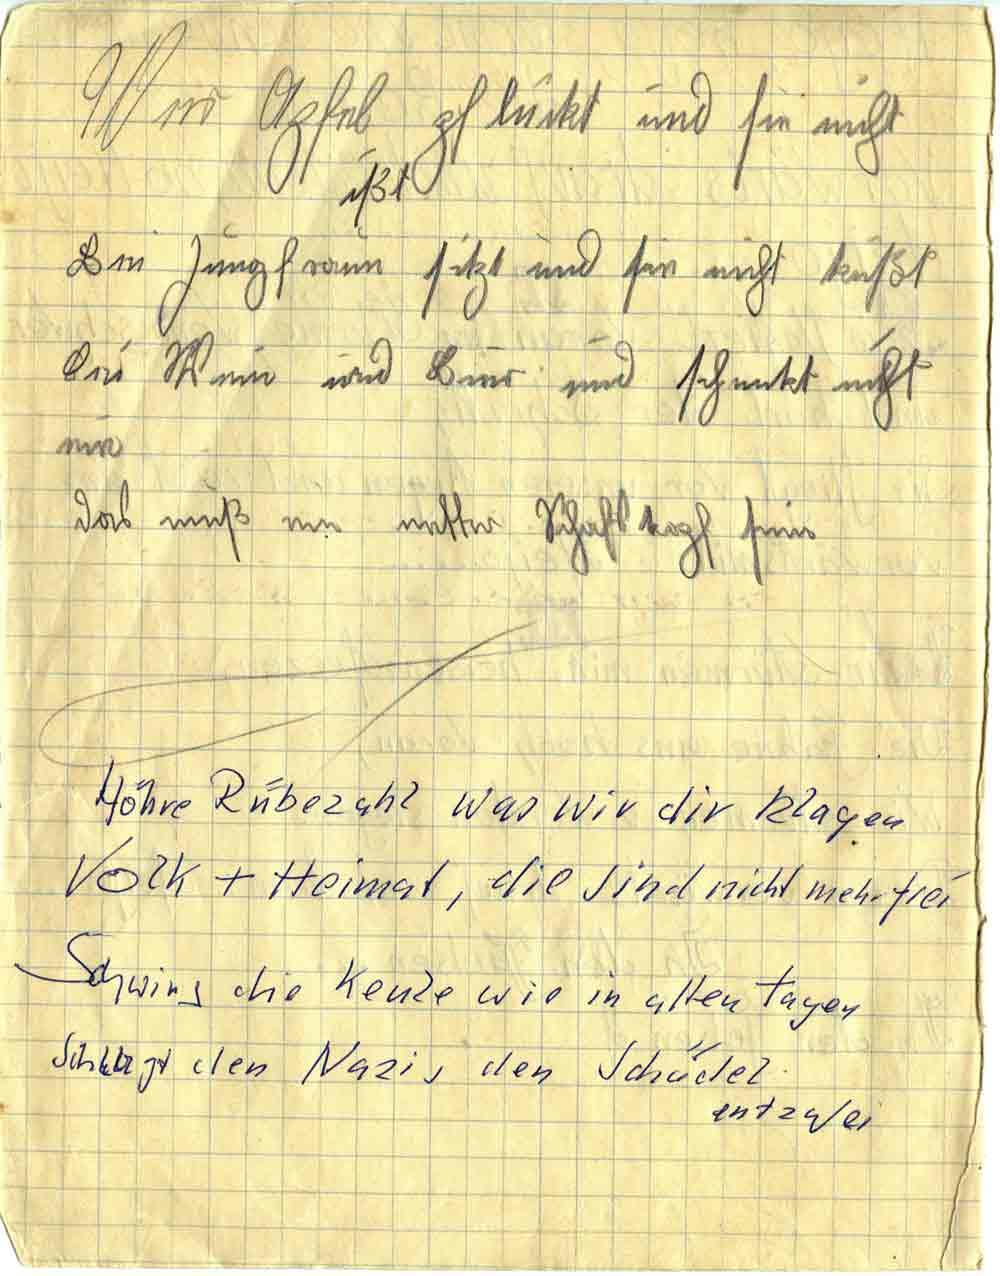 Wer Äpfel pflückt und sie nicht
ißt
Bei Jungfraun sitzt und sie nicht küßt
Bei Wein und Bier und schenkt nicht
ein
das muß ein netter Schafskopf sein
Höhre Rübezahl was wir dir klagen
Volk + Heimat, die sind nicht mehr frei
Schwing die Keule wie in alten Tagen
Schlagt den Nazis den Schädel
entzwei